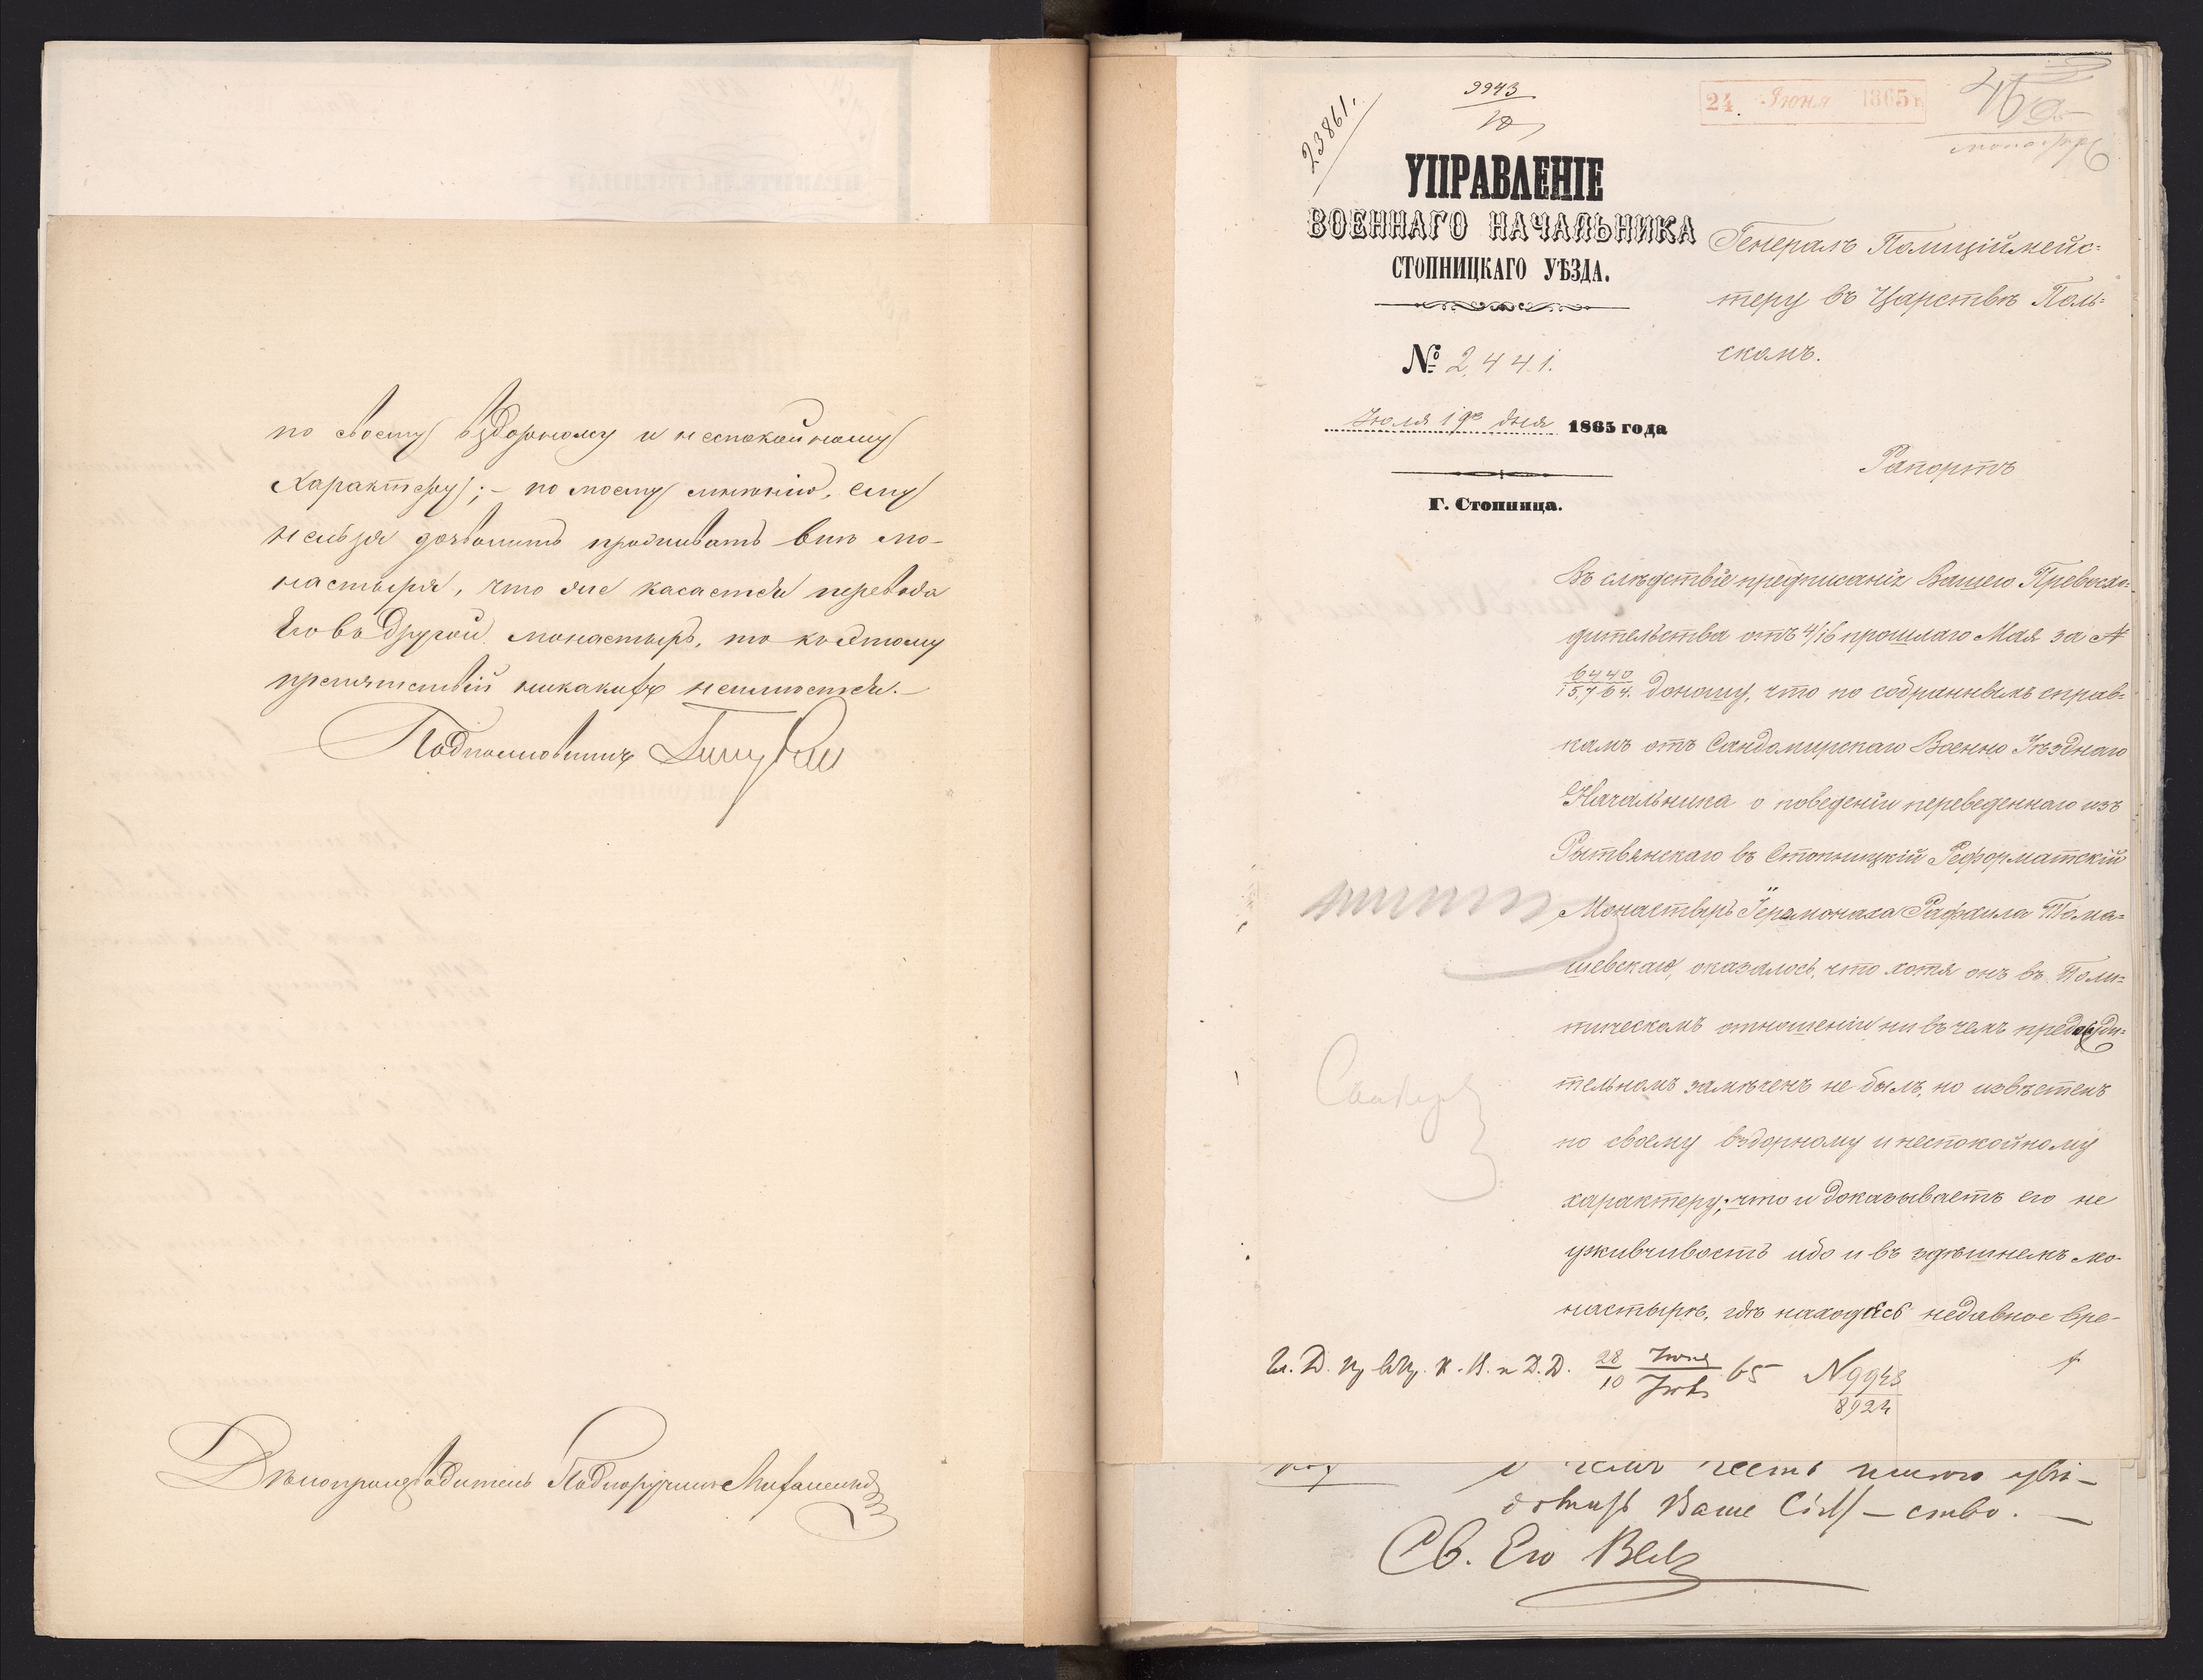 по своему вздорному и неспокойному
характеру; – по моему мнѣнію, ему
нельзя дозволить проживать внѣ мо-
настыря, что же касается перевода
Его въ другой монастырь, то къ этому
препятствій никакихъ неимѣется. –
Подполковникъ
Дѣлопроизводитель Подпоручикъ
23861.
9943
24. Июня 1865 г.
УПРАВЛЕНІЕ
ВОЕННАГО НАЧАЛЬНИКА
СТОПНИЦКАГО УѢЗДА.
№ 2441.
Июля 19го дня 1865 года
Г. Стопница.
Генералъ Полиціймейс=
теру въ Царствѣ Поль=
скомъ.
Рапортъ
Въ слѣдствіе предписанія Вашего Превосхо=
дительства отъ 4/16 прошлаго Мая за №
6440
15,764. доношу, что по собраннымъ справ=
камъ отъ Сандомирскаго Военно Уѣзднаго
Начальника о поведеніи переведеннаго изъ
Рытвянскаго въ Стопницкій Реформатскій
Монастырь Іеромонаха Рафаила Тома=
шевскаго, оказалось, что хотя онъ въ Поли=
тическомъ отношеніи ни въ чемъ предосуди=
тельномъ замѣченъ не былъ, но извѣстенъ
по своему вздорному и неспокойному
характеру; что и доказываетъ его не
уживчивость ибо и въ здѣшнемъ мо-
настырѣ, гдѣ находясь недавное вре-
28 Июня
10 Июля 65 N 9943
8924
о чемъ честь имѣю увѣ-
домить Ваше Сіят – ство. –
Св. Его Вел